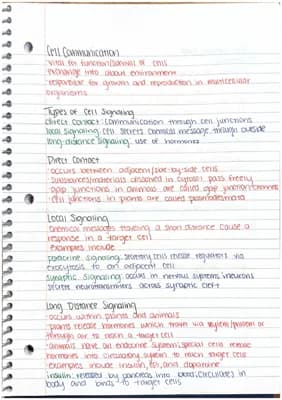 Cell Communication
· vital for function/survival of cells
· exchange info about environment
· responsible for growth and reproduction in multicellular
organisms
Types of Cell Signaling
direct contact: communication through cell junctions
local signaling: cell secretes chemical message through outside
long-distance signaling: use of hormones
Direct Contact
· occurs between adjacent/side-by-side cells
· substances/materials dissolved in cytosol pass freely
· gap junctions in animals are called gap junctions/channels
· cell junctions in plants are called plasmodesmata
Local Signaling
· chemical messages traveling a short distance cause a
response in a target cell
· examples include
paracrine signaling: secretory cells release regulators via
exocytosis to an adjacent cell
synaptic signaling: occurs in nervous systems; neurons
secrete neurotransmitters across synaptic cleft
Long Distance Signaling
· occurs within plants and animals
· plants release hormones which travel via xylem/phloem or
through air to reach a target cell
· animals have an endocrine system; special cells release
hormones into circulatory system to reach target cells
· examples include insulin, and dopamine
insulin: released by pancreas into blood; circulates in
body and binds to target cells